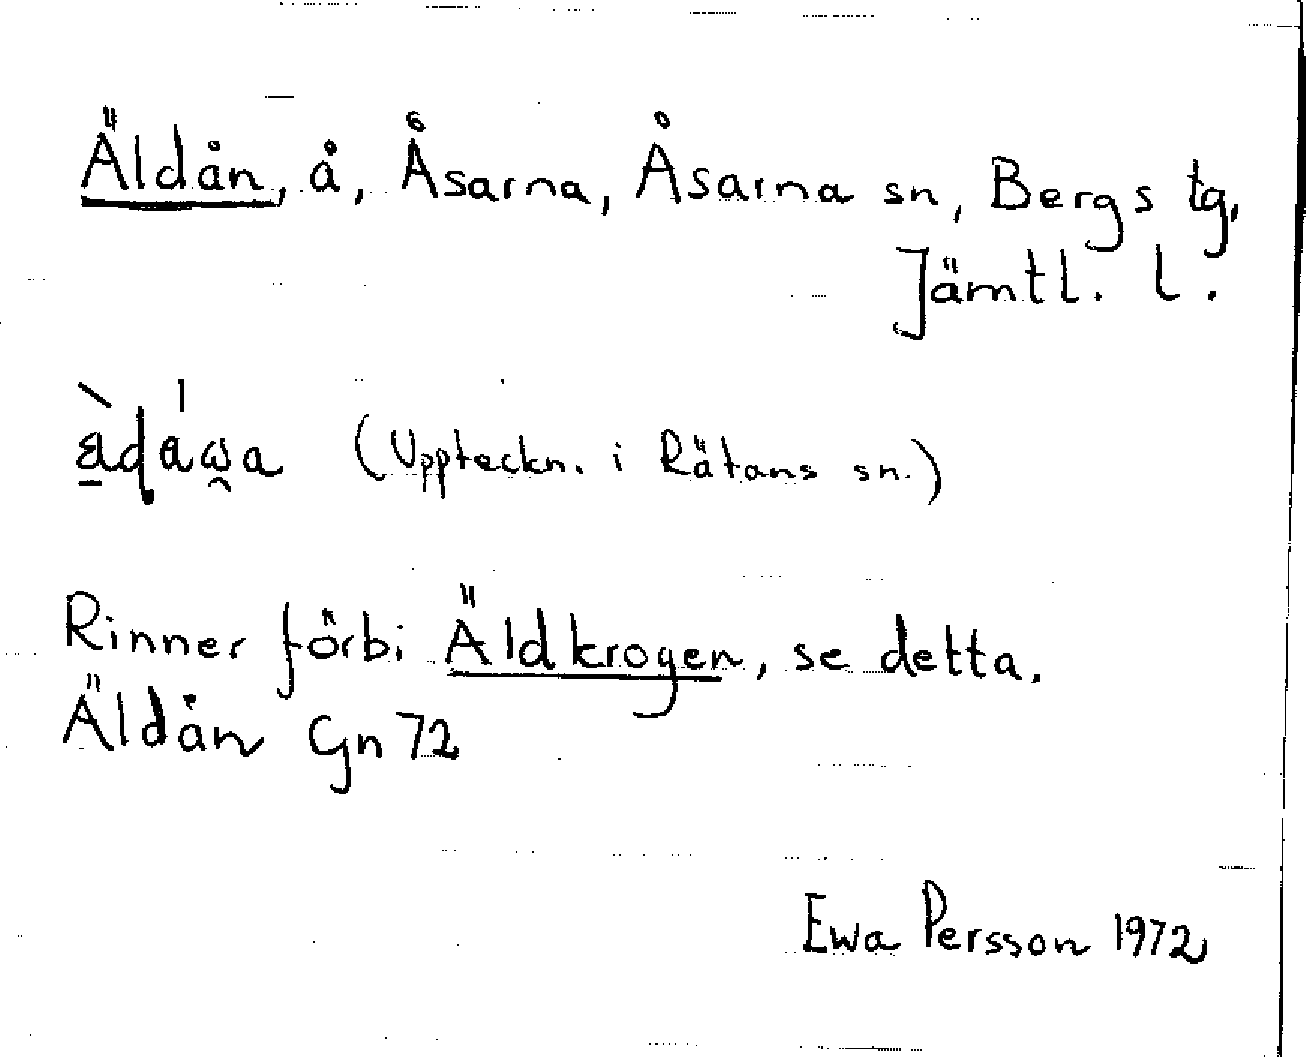 Äldån, å, Åsarna, Åsarna sn, Bergs tg,
Jämtl. l.
(Uppteckn. i Rätans sn.)
Rinner förbi Äldkrogen, se detta.
Äldån Gn 72
Ewa Persson 1972